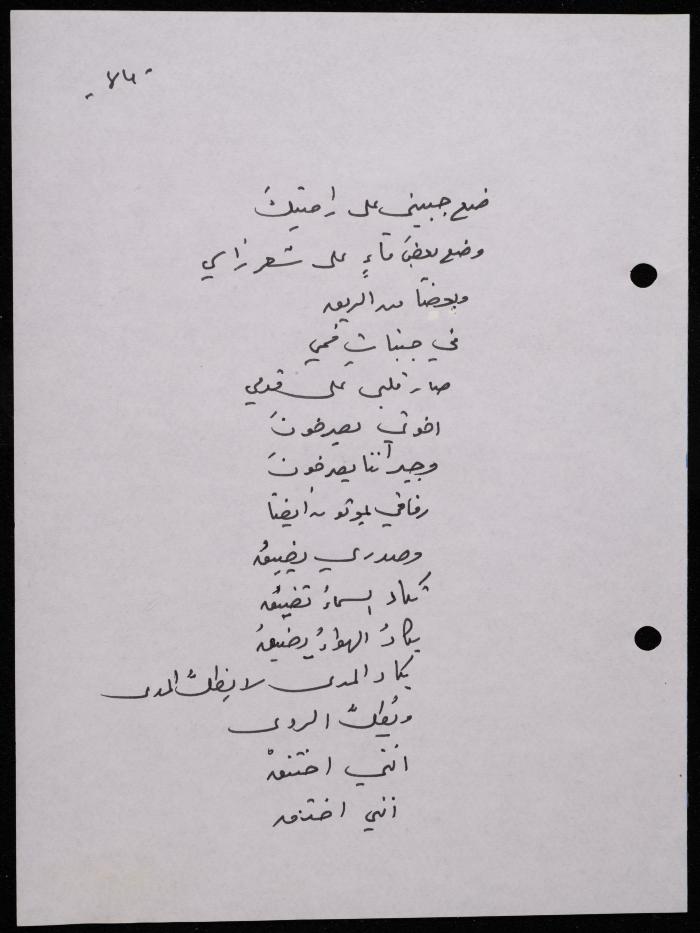 ضع جبيني على راحتيكَ
وضع بعضَ ماءٍ على شعر رأسي
وبعضاً من الريق
في جنبات فمي
صار قلبي على قدمي
اخوتي يصرخونَ
وجيراننا يصرخونَ
رفاقي يموتون أيضاً
وصدري يضيقُ
تكاد السماءُ تضيقُ
يكادُ الهواءُ يضيقُ
يكاد المدى لا يظلُّ المدى
ويُطلُّ الردى
انني اختنقْ
انني اختنق